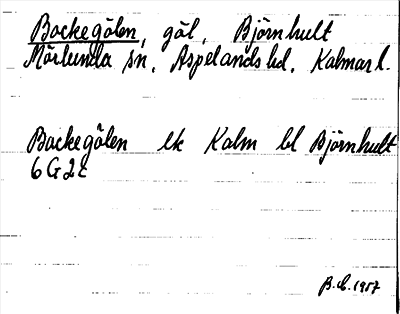 Backegölen, göl, Björnhult
Mörlunda sn, Aspelands hd, Kalmar l.
Backegölen ek Kalm bl Björnhult
6G2c
B.L. 1957